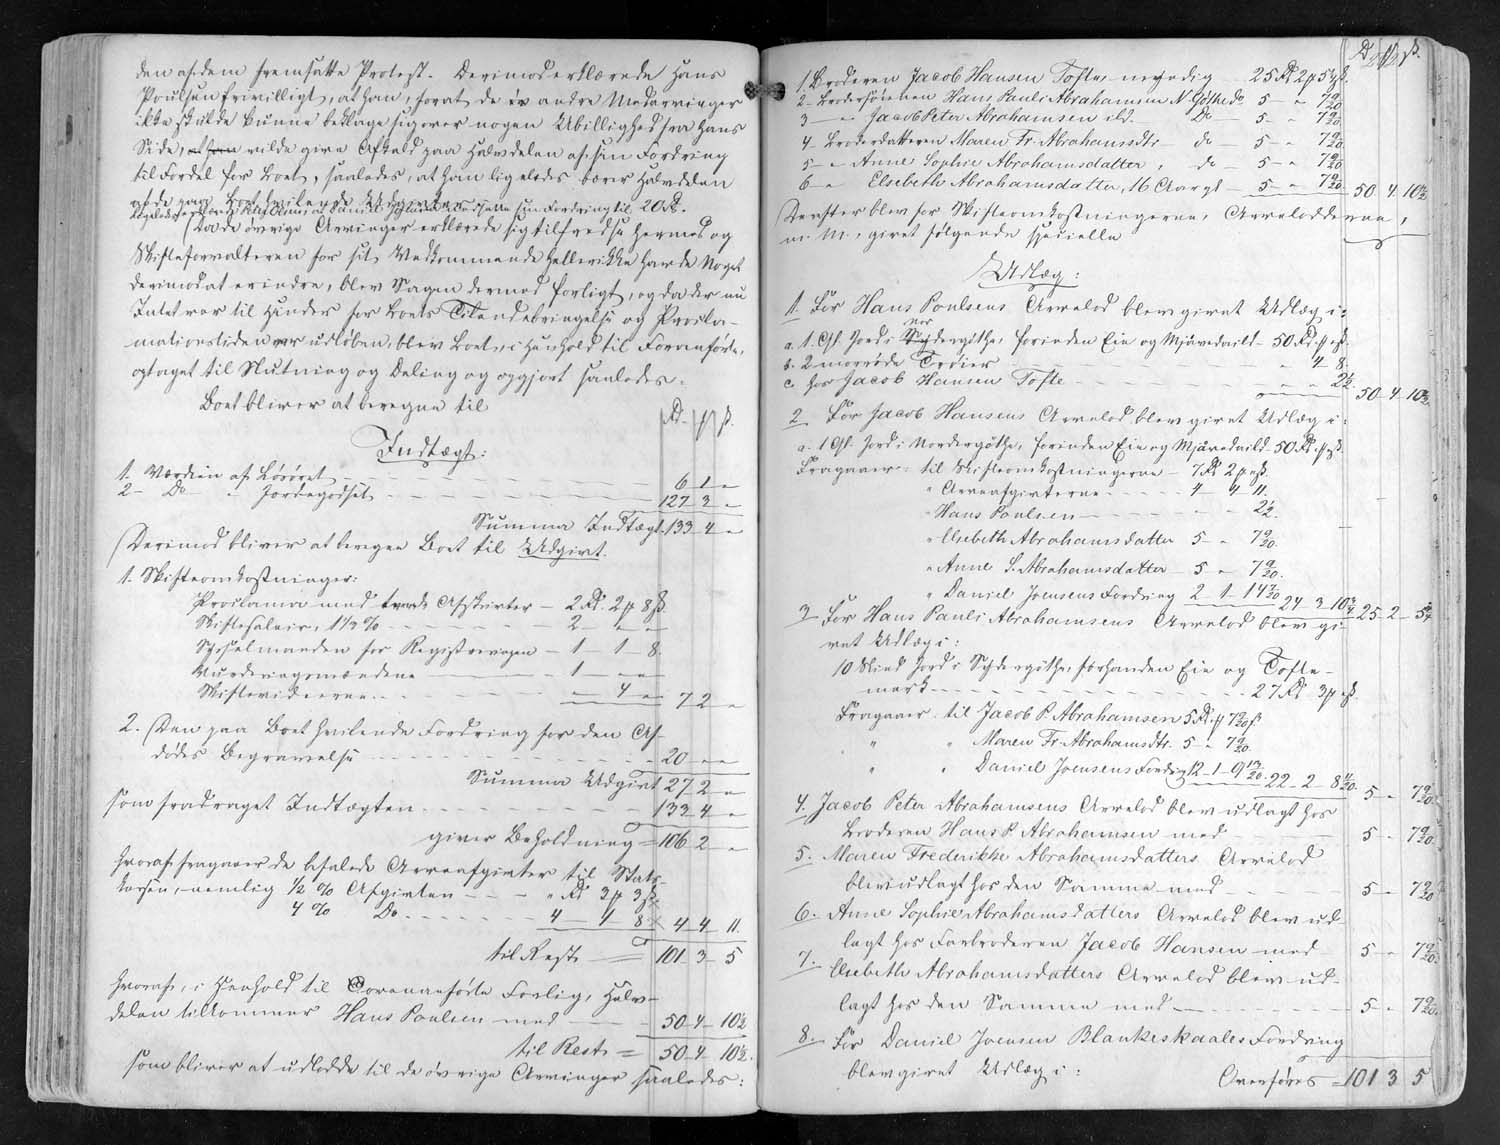 den af dem fremsatte Protest. Derimod erklærede Hans
Poulsen frivilligt, at han, forat de öv andre Medarvinger
ikke skulde kunne beklage sig over nogen Ubillighed fra Hans
Side, at han vilde give Afkald paa Halvdelen af sin Fordring
til Fordel for Boet, saaledes, at han ligeledes bærer Halvdelen
af de paa Boet hvilende Udgivter
Daniel Joensen sin Fordring til 20 Rd.
Da de övrige Arvinger erklærede sig tilfredse hermed og
Skifteforvalteren for sit Vedkommende heller ikke havde Noget
derimod at erindre, blev Sagen dermed forligt, og da der nu
Intet var til Hinder for Boets Tilendebringelse og Procla-
mationstiden var udlöben, blev Boet, i Henhold til Foranförte,
optaget til Slutning og Deling og opgjort saaledes:
Boet bliver at beregne til
Rd. ꝑ ß.
Indtægt:
1. Værdien af Lösöret 6 1 "
2 - Do - " Jordegodset 127 3 "
Summa Indtægt 133 4 "
Derimod bliver at beregne Boet til Udgivt.
1. Skifteomkostninger:
Proclama med trende Afskrivter - 2 Rd. 2 ꝑ 8 ß.
Skiftesalair, 1½ % 2 - " "
Sysselmanden for Registreringen - 1 - 1 - 8.
Vurderingsmændene - 1 " "
Skiftevidnerne " 4 " 7 2 "
2. Den paa Boet hvilende Fordring for den Af-
dödes Begravelse 20 " "
Summa Udgivt 27 2 "
som fradraget Indtægten 133 4 "
giver Beholdning = 106 2 "
hvoraf fragaaer de befalede Arveafgivter til Stats-
kassen, nemlig ½ % Afgivten " Rd 3 ꝑ 3 ß
4 % Do 4 - 1 - 8 4 4 11.
til Rest = 101 3 - 5
hvoraf, i Henhold til Foranförte Forlig, Halv-
delen tilkommer Hans Poulsen med 50 - 4 - 10½
til Rest = 50 - 4 10½.
som bliver at udlodde til de övrige Arvinger saaledes:
Rd ꝑ ß.
1. Broderen Jacob Hansen Tofte, myndig 25 Rd 2 ꝑ 5¼ ß.
2 - Brodersönnen Hans Pauli Abrahamsen N. Göthe Do 5 - " 7 9/20
3 - " Jacob Peter Abrahamsen ibd. Do - 5 - " 7 9/20
4 - Broderdatteren Maren Fr. Abrahamsdtr - do - 5 - " 7 9/20
5 - " Anne Sophie Abrahamsdatter, do - 5 - " 7 9/20
6 - " Elsebeth Abrahamsdatter, 16 Aar gl - 5 - " 7 9/20 50 4 10½
Derefter blev for Skifteomkostningerne, Arvelodderne,
m. M., givet fölgende specielle
Udlæg:
1. For Hans Poulsens Arvelod blev givet Udlæg i:
a. 1 Gl. Jord i Nordergöthe, forinden Eie og Mjávedail - 50 Rd " ꝑ " ß.
b. 2 morröde " 4 - 8.
c hos Jacob Hansen Tofte " " 2½. 50 - 4 - 10½
2. For Jacob Hansens Arvelod blev givet Udlæg i:
a. 1 Gl. Jord i Nordergöthe, forinden Eie og Mjávedaild - 50 Rd " ꝑ " ß.
Fragaaer: til Skifteomkostningerne - 7 Rd 2 ꝑ " ß.
" Arveafgivterne 4 - 4 - 11.
" Hans Poulsen 2½.
" Elsebeth Abrahamsdatter 5 - " 7 9/20.
" Anne S. Abrahamsdatter - 5 - " 7 9/20.
" Daniel Joensens Fordring 2 - 1 - 14 24 - 3 - 10¾ 25 - 2 - 5¼
3. For Hans Pauli Abrahamsens Arvelod blev gi-
vet Udlæg i:
10 Skind Jord i Syndergöthe, forhanden Eie og Tofte-
mark 27 Rd 3 ꝑ " ß.
Fragaaer til Jacob P. Abrahamsen 5 Rd. " ꝑ 7 9/20 ß
" " Maren Fr. Abrahamsdtr. 5 - " 7 9/20.
" " Daniel Joensens Fordring 12 - 1 - 9 13/20. 22 - 2 - 8 11/20. 5 - " 7 9/20.
4. Jacob Peter Abrahamsens Arvelod blev udlagt hos
Broderen Hans P. Abrahamsen med 5 - " 7 9/20.
5. Maren Frederikke Abrahamsdatters Arvelod
blev udlagt hos den Samme med 5 - " 7 9/20
6. Anne Sophie Abrahamsdatters Arvelod blev ud-
lagt hos Farbroderen Jacob Hansen med 5 - " 7 9/20.
7. Elsebeth Abrahamsdatters Arvelod blev ud-
lagt hos den Samme med 5 - " 7 9/20.
8. For Daniel Joensen Blankeskaales Fordring
blev givet Udlæg i: Overföres = 101 3 5